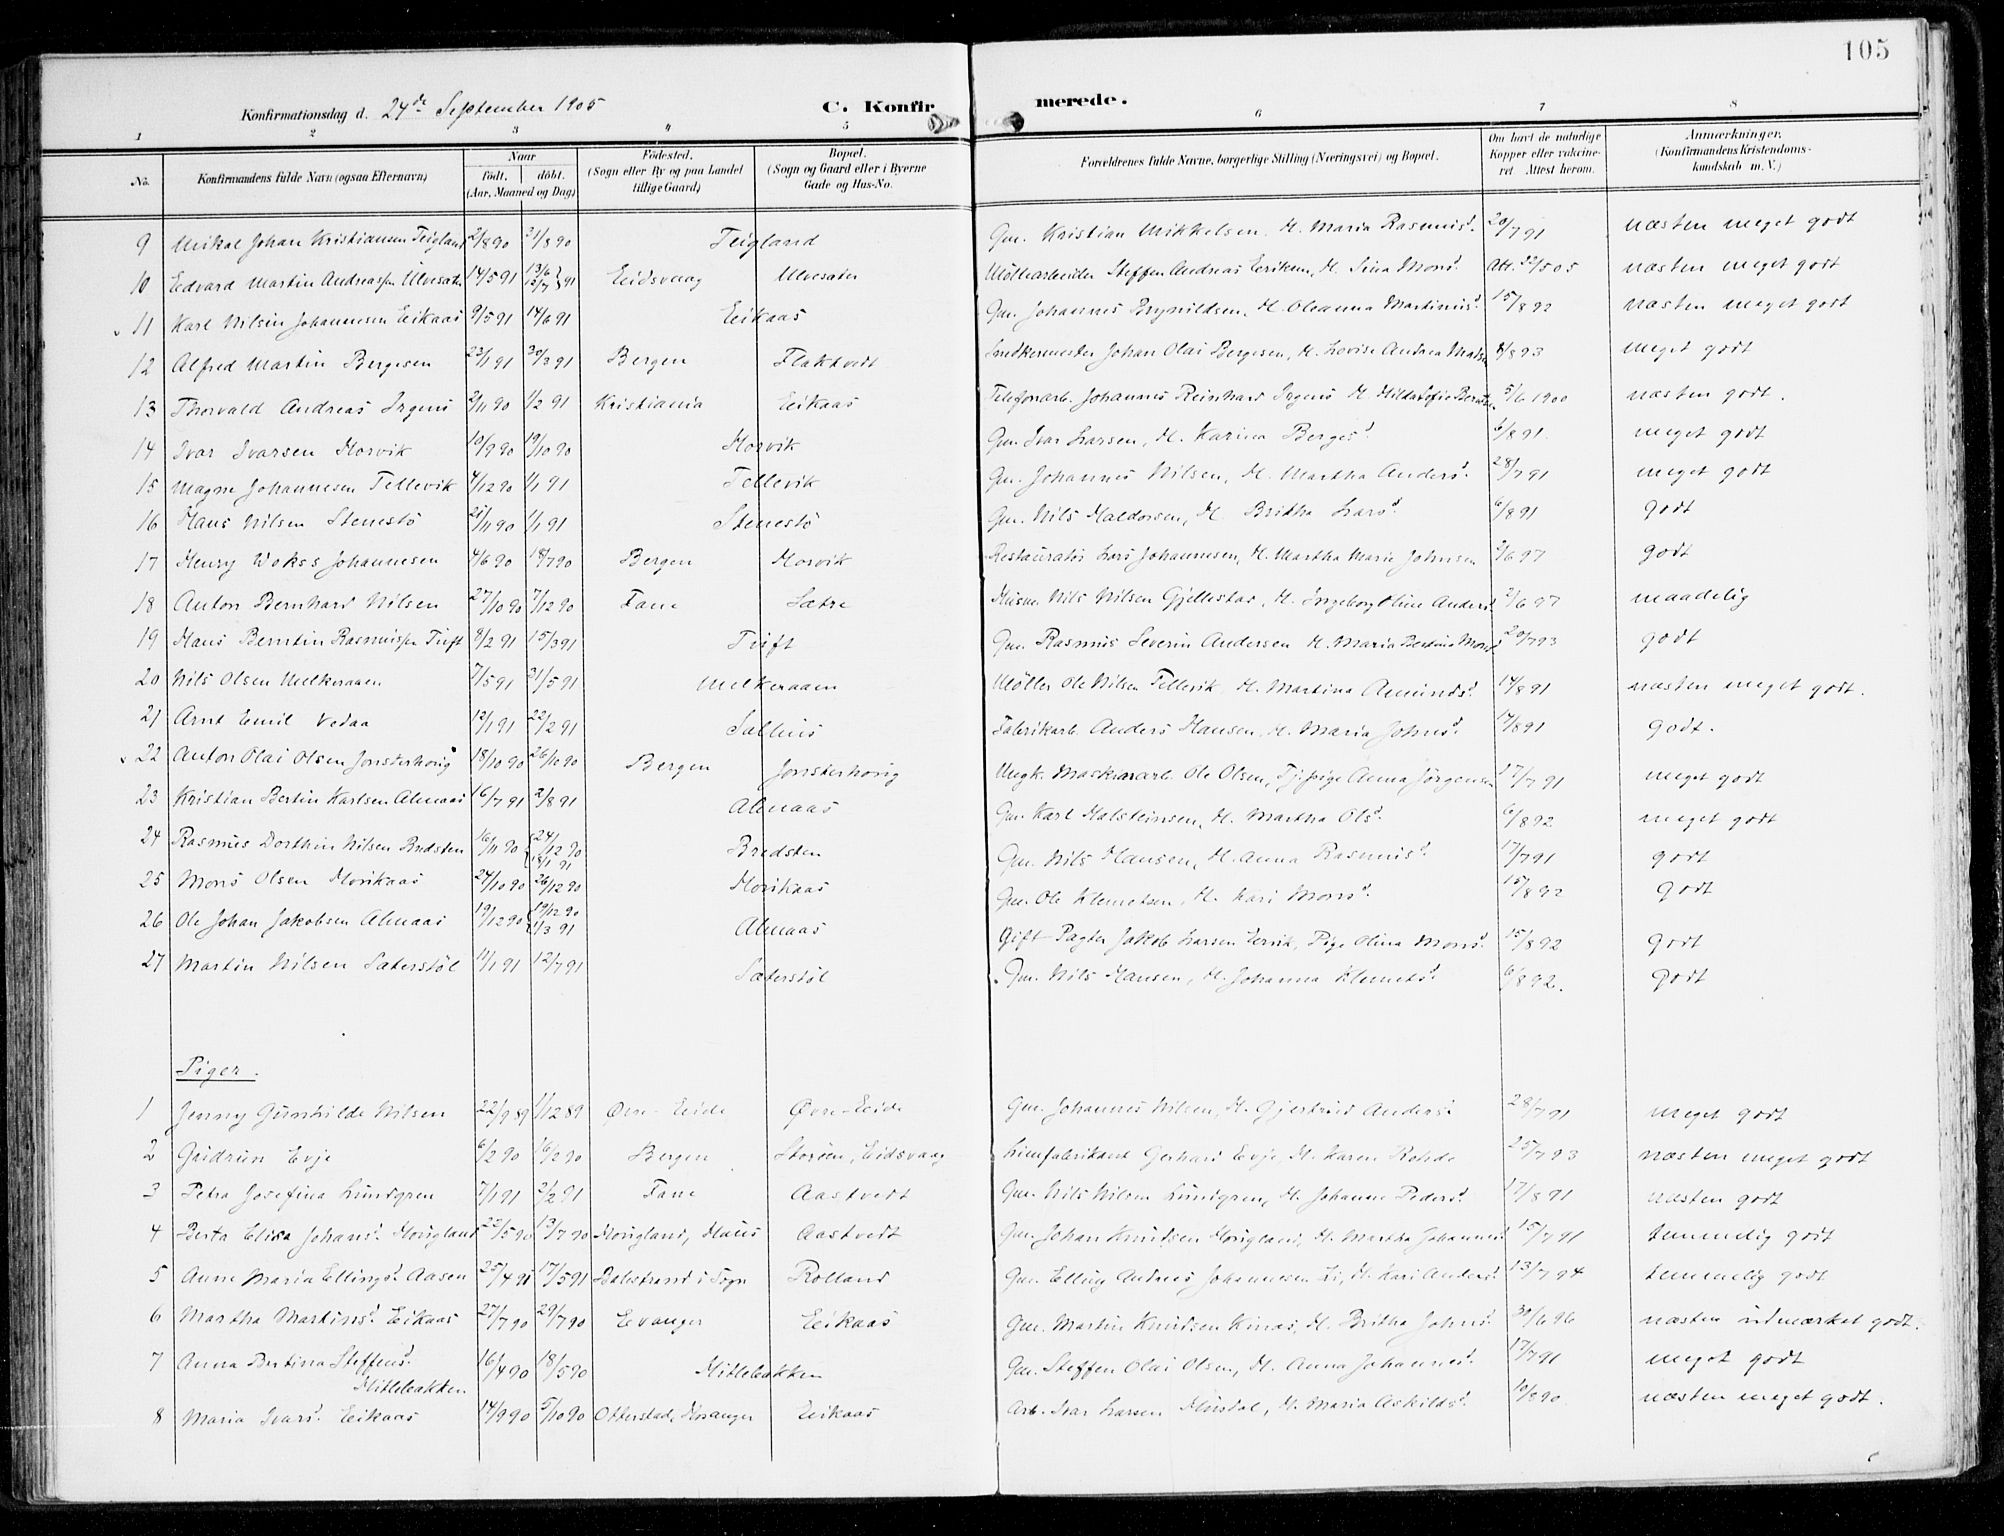 105
Konfirmationsdag d. 24de September 1905 C. Konfirmerede.
1 2 3 4 5 6 7 8
No. Konfirmandens fulde Navn (ogsaa Efternavn) Naar født. døbt. (Aar, Maaned og Dag) Fødested. (Sogn eller By og paa Landet tillige Gaard) Bopæl. (Sogn og Gaard eller i Byerne Gade og Hus-No. Forældrenes fulde Navne, borgerlige Stilling (Næringsvei) og Bopæl. Om havt de naturlige Kopper eller vaccineret Attest herom. Anmærkninger. (Konfirmandens Kristendomskundskab m. V.)
9 Mikal Johan Kristiansen Teigland 2/8 90 21/8 90 Teigland Gm. Kristian Mikkelsen, H. Maria Rasmusd. 20/7 91 næsten meget godt
10 Edvard Martin Andreassen Ulvesæter 14/5 91 13/6 12/7 } 91 Eidsvaag Ulvesæter Møllearbeider Steffen Andreas Eriksen, H. Sina Monsd. Att. /5 05 næsten meget godt
11 Karl Nilsin Johannesen Eikaas 9/5 91 14/6 91 Eikaas Gm. Johannes Brynildsen, H. Oleanna Martinusd. 15/8 92 næsten meget godt
12 Alfred Martin Bergesen 23/1 91 30/3 91 Bergen Flaktvedt Snedkermester Johan Olai Bergesen, H. Lovise Andrea 8/8 93 meget godt
13 Thorvald Andreas Irgens 2/11 90 1/2 91 Kristiania Eikaas Telefonarb. Johannes Reinhard Irgens H. Hilda Sofie 5/6 1900 næsten godt.
14 Ivar Ivarsen Horvik 10/9 90 19/10 90 Horvik Gm. Ivar Larsen, H. Karina Berges d. 6/8 91. meget godt
15 Magne Johannesen Tellevik 4/12 90 1/1 91 Tellevik Gm. Johannes Nilsen, H. Martha Andersd. 28/7 91 meget godt
16 Hans Nilsen Stenestø 21/11 90 1/1 91 Stenestø Gm. Nils Haldorsen, H. Britha Larsd. 6/8 91 godt
17 Henry Wokss Johannesen 4/6 90 18/7 90 Bergen Horvik Restauratør Lars Johannesen, H. Martha Marie Johnsen 2/6 97 godt
18 Anton Bernhard Nilsen 27/10 90 7/12 90 Fane Sætre Husm. Nils Nilsen Gjellestad, H. Ingeborg Oline Andersd. 2/6 97 maadelig
19 Hans Berntin Rasmussen Tuft 8/2 91 15/3 91 Tuft Gm. Rasmus Severin Andersen H. Maria Bertina Monsd. 20/7 93 godt
20 Nils Olsen Melkeraaen 7/5 91 31/5 91 Melkeraaen Møller Ole Nilsen Tellevik, H. Martina Amundsd. 14/8 91 næsten meget godt.
21 Arnt Emil Vedaa 12/1 91 22/2 91 Salhus Fabrikarb. Anders Hansen, H. Maria Johnsd. 17/8 91 godt.
22 Anton Olai Olsen Jonsterhaug 18/10 90 26/10 90 Bergen Jonsterhoug Ungk. Maskinarb. Ole Olsen, Tj. pige Anna Jørgensen 17/7 91 meget godt
23 Kristian Bertin Karlsen Almaas 16/7 91 2/8 91 Almaas Gm. Karl Halsteinsen, H. Martha Olsd. 6/8 92 meget godt
24 Rasmus Dorthin Nilsen Bredsten 16/11 90 { 24/12 90 18/1 91 Bredsten Gm. Nils Hansen, H. Anna Rasmusd. 17/7 91 godt
25 Mons Olsen Horikaas 24/10 90 26/12 90 Horikaas Gm. Ole Klemetsen, H. Kari Monsd. 15/8 92 godt
26 Ole Johan Jakobsen Almaas 19/12 90 { 19/12 90 1/3 91 Almaas Gift Pagter Jakob Larsen Eervik, Pige Olina Monsd. 15/8 92 godt
27 Martin Nilsen Sæterstøl 11/1 91 12/7 91 Sæterstøl Gm. Nils Hansen, H. Johanna Klemetsd. 6/8 92. godt
Piger.
1 Jenny Gunhilde Nilsen 22/9 89 1/12 89 Øvre-Eide Øvre-Eide Gm. Johannes Nilsen, H. Gjertrud Andersd. 28/7 91 meget godt
2 Gudrun Evje 6/2 90 16/2 90 Bergen Storøen, Eidsvaag Limfabrikant Gerhard Evje, H. Karen Rohde 25/7 93 næsten meget godt
3 Petra Josefina Lundgren 7/1 91 2/2 91 Fane Aastvedt Gm. Nils Nilsen Lundgren, H. Johanne Pedersd. 17/8 91 næsten godt
4 Berta Elisa Johansd. Hougland 22/5 90 13/7 90 Hougland, Haus Aastvedt Gm. Johan Knudsen Hougland, H. Martha Johannesd. 15/7 91 temmelig godt
5 Anne Maria Ellingsd. Aasen 25/4 91 17/5 91 Balestrand i Sogn Rolland Gm. Elling Andreas Johannesen Li, H. Kari Andersd. 13/7 94 temmelig godt
6 Martha Martinsd. Eikaas 27/7 90 29/7 90 Evanger Eikaas Gm. Martin Knudsen Kinas, H. Britha Johnsd. 30/6 96 næsten udmærket godt.
7 Anna Bertina Steffensd. Mitlebakken 16/4 90 18/5 90 Mitlebakken Gm. Steffen Olai Olsen, H. Anna Johannesd. 17/7 91 meget godt
8 Maria Ivarsd. Eikaas 14/9 90 5/10 90 Otterstad, Hosanger Eikaas Arb. Ivar Larsen Husdal, H. Maria Askildsd. 10/8 90 næsten meget godt.